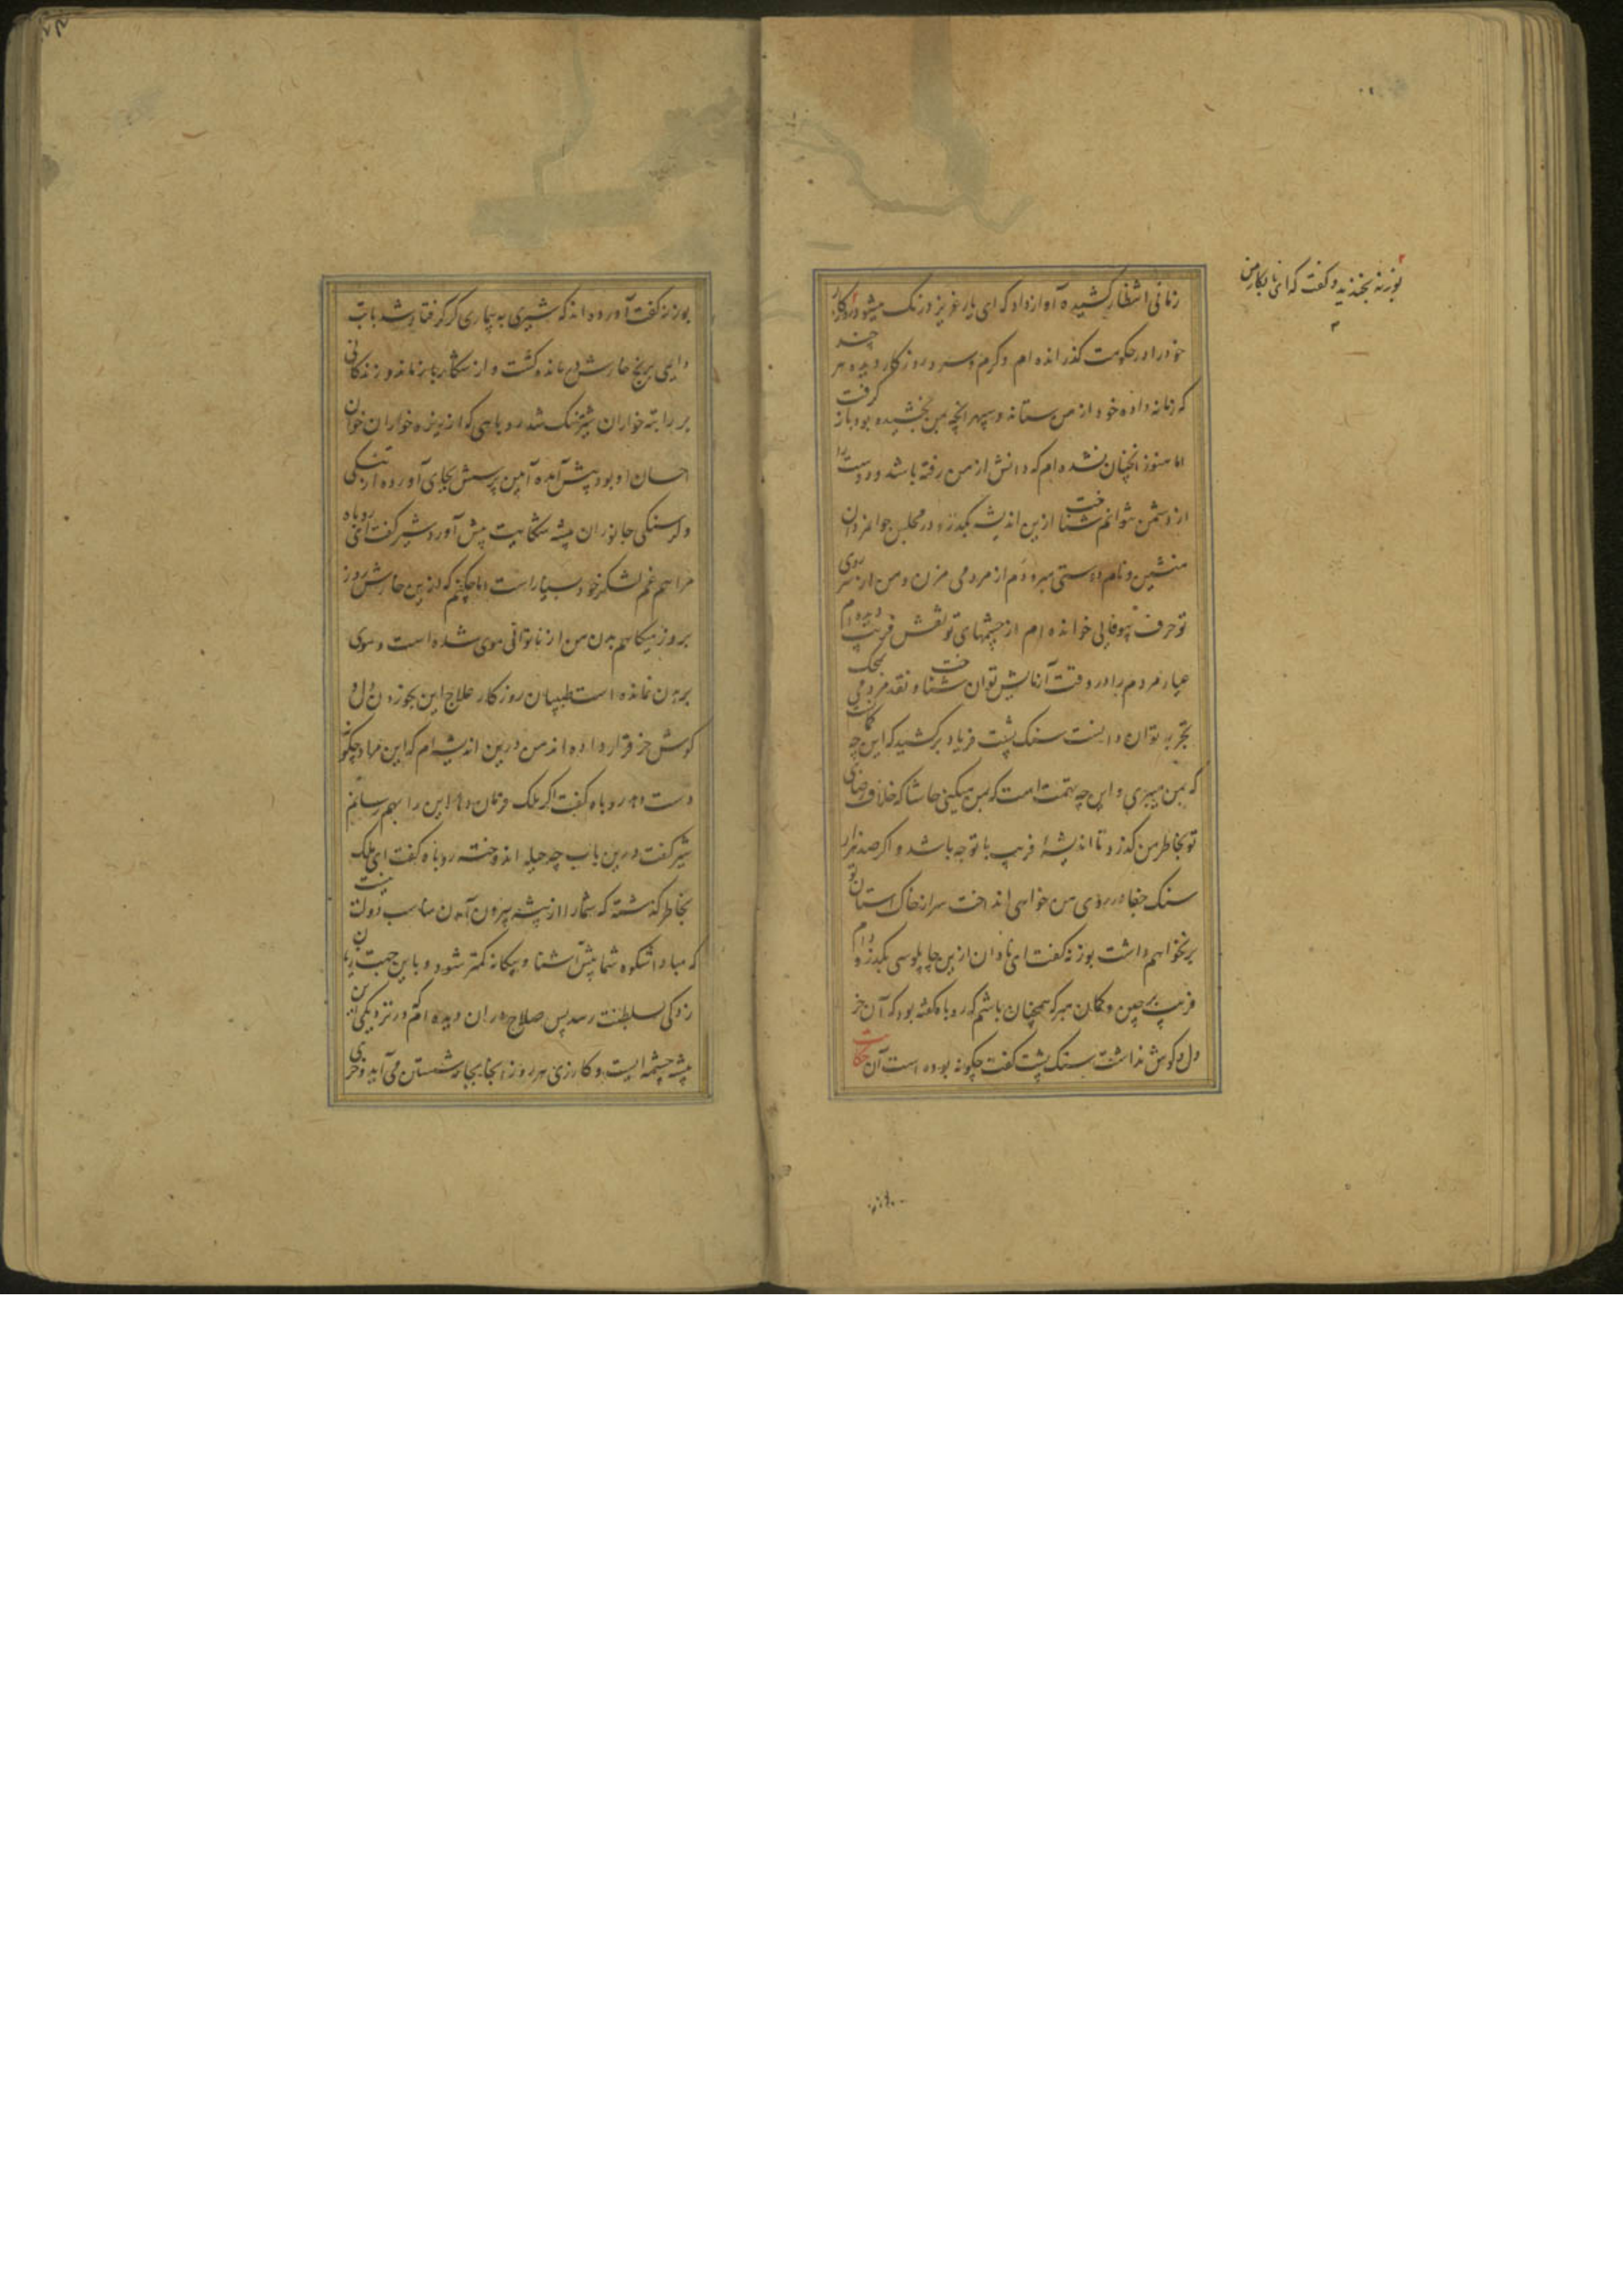 بوزنه بخندید و گفت که ای نابکار من
زمانی انتظار کشیده آواز داد که ای یار عزیز درنگ میشود روزگار
خود را در حکومت گذرانده ام و گرم و سرد روزگار دیده هر چند
که زمانه داده خود از من ستانه و سپهر انچه بمن بخشیده بود باز گرفت
اما هنوز انچنان نشده ام که دانش از من رفته باشد و دوست را
از دشمن نتوانم شناخت ازین اندیشه بگذر و در مجلس جوانمردان
منشین و نام دوستی مبر و دم از مردمی مزن و من از روی
تو حرف بیوفایی خوانده ام از چشمهای تو نقش فریب دیده ام
عیار مردم را در وقت آزمایش توان شناخت و نقد مردمی بمحک
تجربه توان دانست سنک پشت فریاد برکشید که این چه کمانست
که بمن میبری و این چه تهمت است که بمن میکنی حاشا که خلاف رضای
تو بخاطر من گذرد تا اندیشهٔ فریب با تو چه باشد و اکر صد هزار
سنک جفا در روی من خواهی انداخت سر از خاک استان تو
برنخواهم داشت بوزنه گفت ای نادان ازین چاپلوسی بگذر و دام
فریب برچین و کمان مبر که همچنان باشم که روباه گفته بود که آن خر
دل و گوش نداشت سنک پشت گفت چکونه بوده است آن حکایت
بوزنه گفت آورده اند که شیری به بیماری کر گرفتار شد با تب
دایمی برنج خارش در مانده گشت و از شکار باز ماند و زندگانی
بر راتبه خواران شیر تنک شد روباهی که از ریزه خواران خوان
احسان او بود پیش آمده آیین پرسش بجای آورده از تنکی
و کرسنکی جانوران بیشه شکایت پیش آورد شیر گفت ای روباه
مرا هم غم لشکر خود بسیار است اما چکنم که ازین خارش روز
بروز میکاهم بدن من از ناتوانی موی شده است و موی
بر بدن نمانده است طبیبان روزگار علاج این بخوردن دل و
گوش خر قرار داده اند من درین اندیشه ام که این مراد چگونه
دست دهد روباه گفت اکر ملک فرمان دهد این را بهم رسانم
شیر گفت درین باب چه حیله اندوخته روباه گفت ای ملک
بخاطر گذشته که شما را از بیشه بیرون آمدن مناسب دولت نیست
که مبادا شکوه شما پیش آشنا و بیکانه کمتر شود و باین جهت زیان
زدگی بسلطنت رسد پس صلاح دران دیده ام که در نزدیکی این
بیشه چشمه ایست و کازری هر روز انجا بجامه شستن می آید و خری